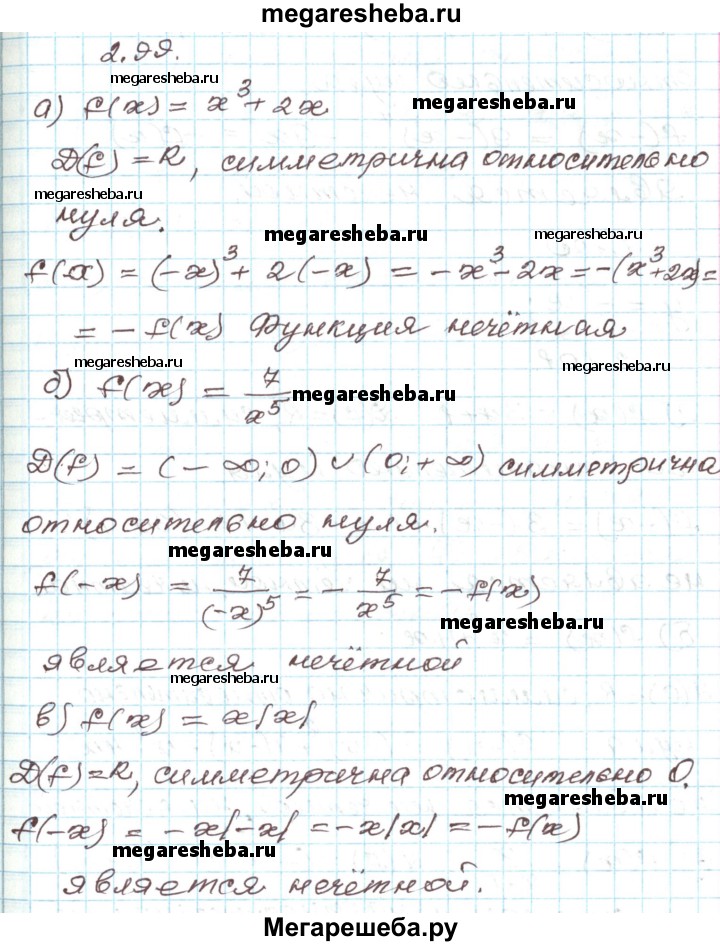 megaresheba.ru
2.99.
megaresheba.ru
а) f(x) = x³ + 2x megaresheba.ru
D(f) = R, симметрична относительно
megaresheba.ru нуля. megaresheba.ru megaresheba.ru
f(-x) = (-x)³ + 2(-x) = -x³ - 2x = -(x³+2x) =
= -f(x) Функция нечётная
megaresheba.ru megaresheba.ru
б) f(x) = 7/x⁵ megaresheba.ru
D(f) = (-∞; 0) ∪ (0; +∞) симметрична
относительно нуля.
megaresheba.ru
f(-x) = 7/(-x)⁵ = - 7/x⁵ = -f(x)
megaresheba.ru
является нечётной
megaresheba.ru
в) f(x) = x|x|
D(f)=R, симметрична относительно 0.
megaresheba.ru
f(-x) = -x|-x| = -x|x| = -f(x)
megaresheba.ru
является нечётной.
Мегарешеба.ру